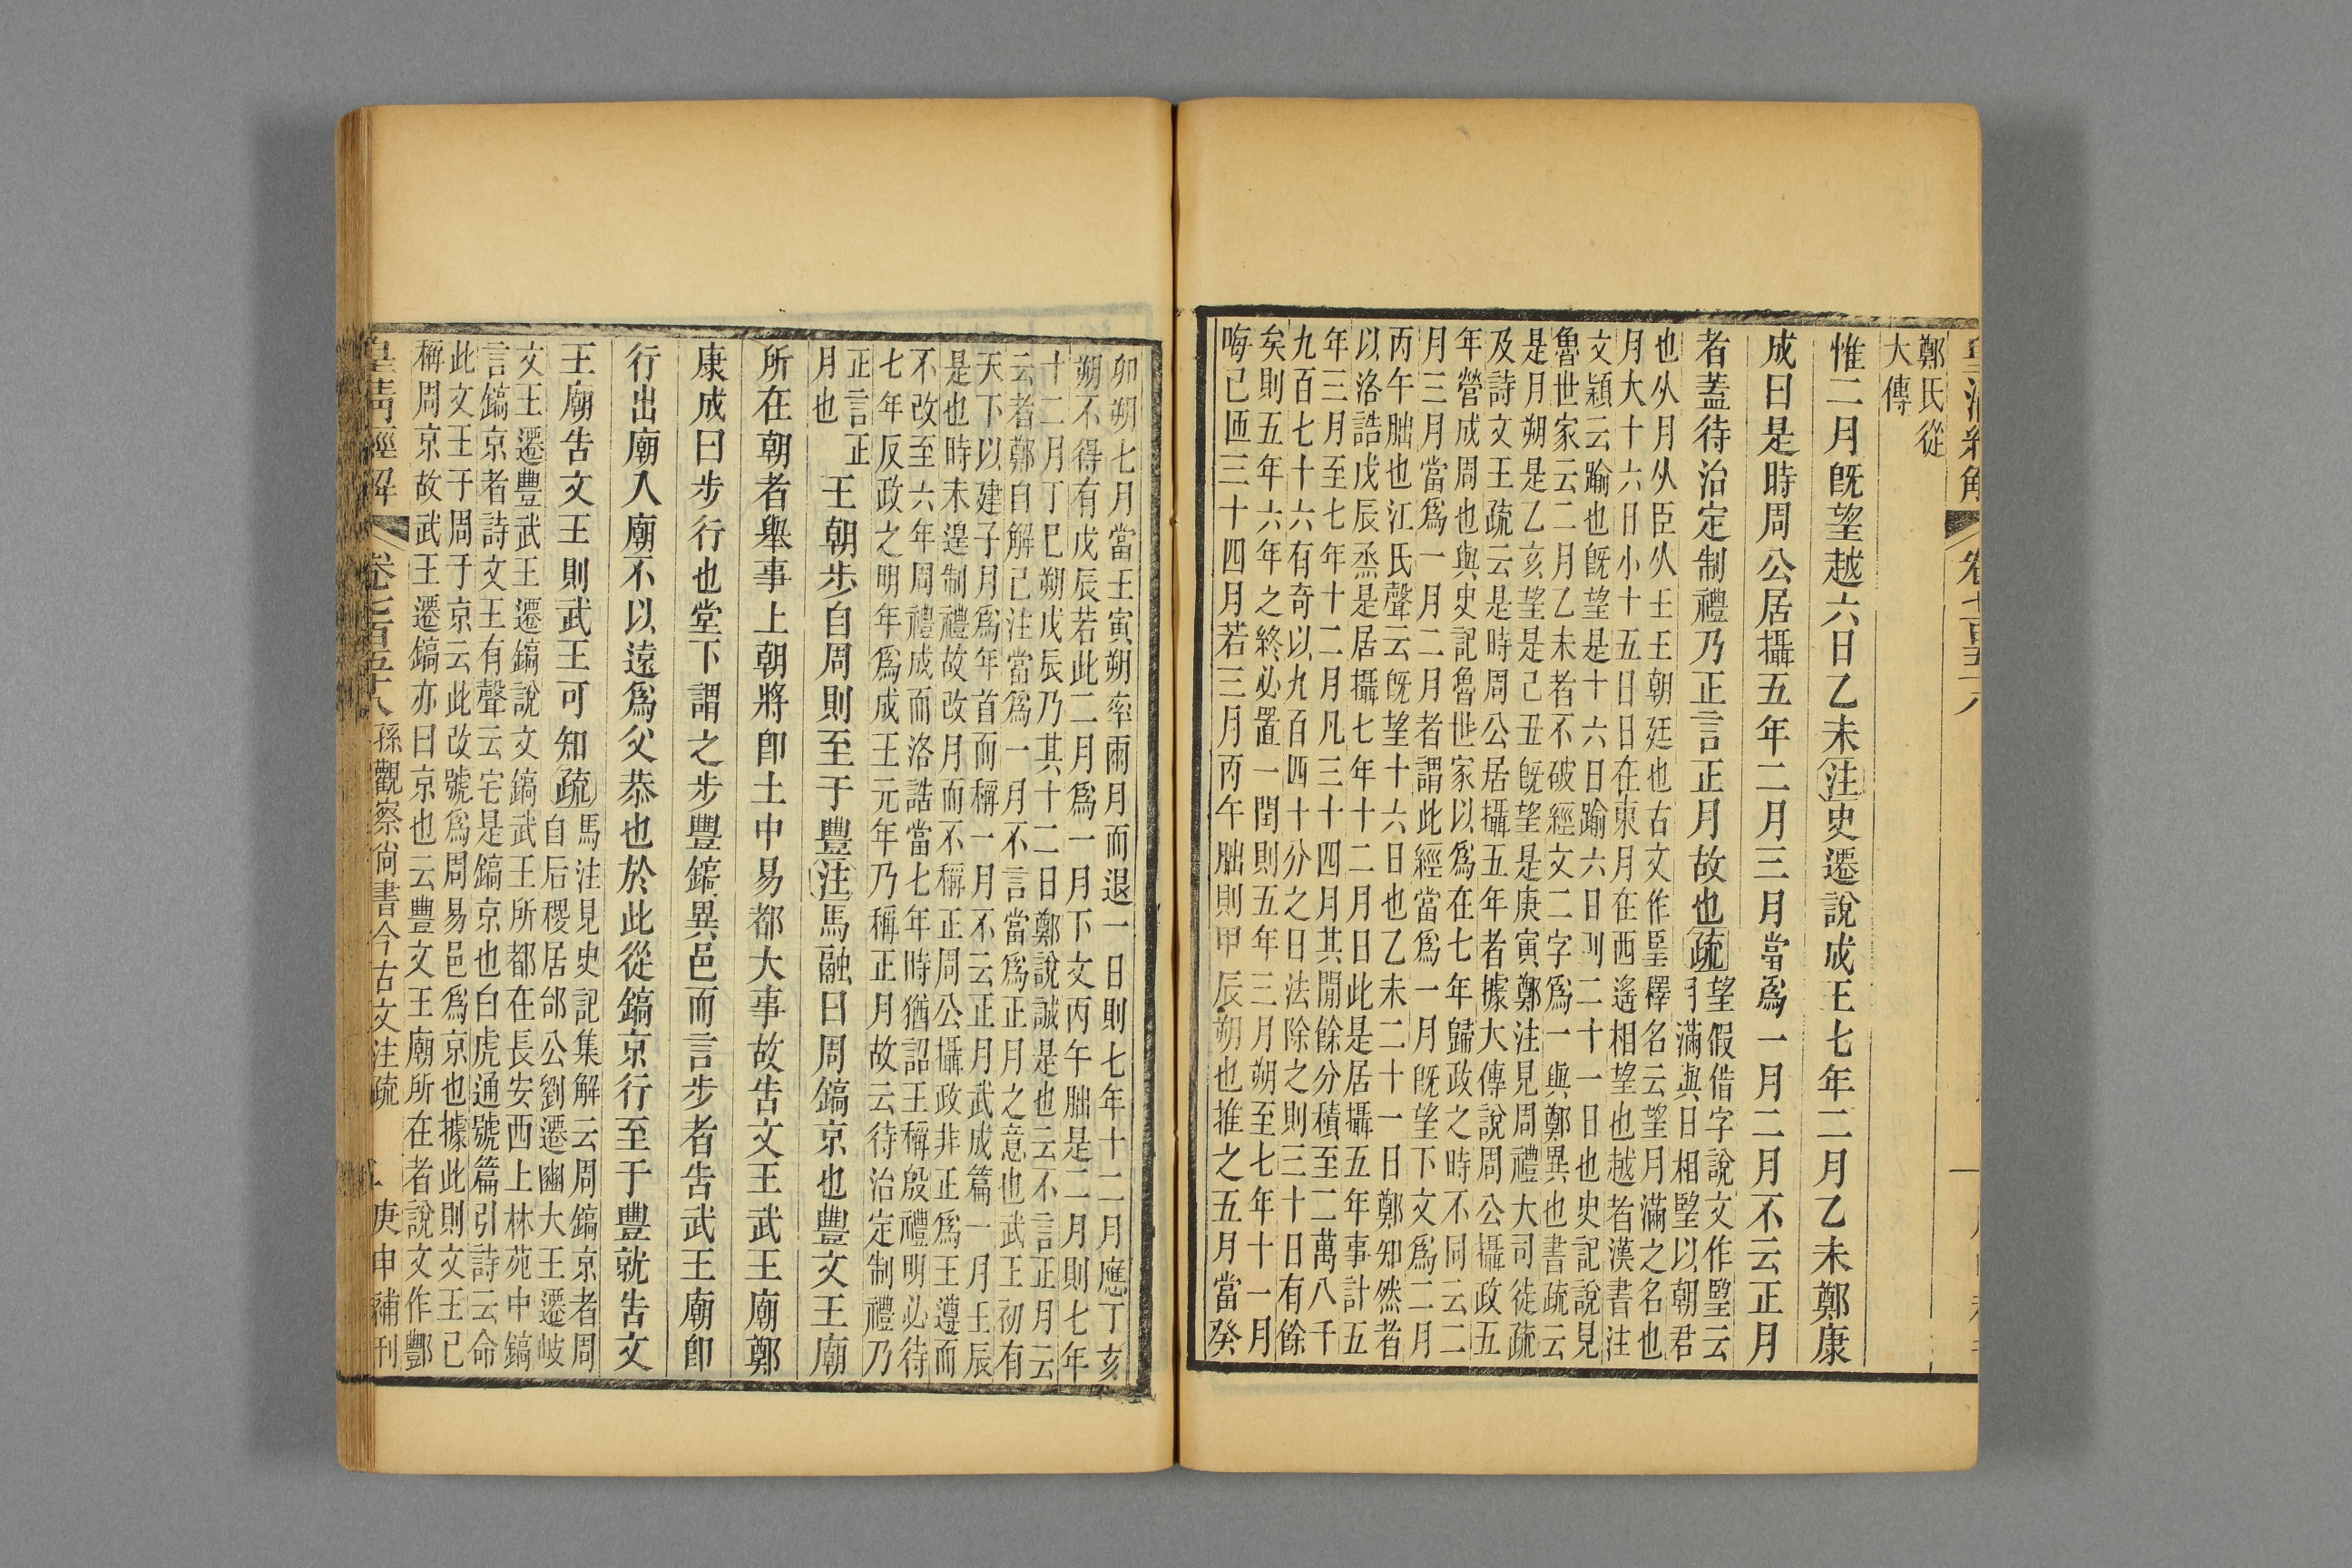 鄭氏從
大傳
惟二月旣望越六日乙未注史遷說成王七年二月乙未鄭康
成曰是時周公居攝五年二月三月當爲一月二月不云正月
者蓋待治定制禮乃正言正月故也疏
望假借字說文作朢云
月滿與日相朢以朝君
也从月从臣从王王朝廷也古文作𦣠釋名云望月滿之名也
月大十六日小十五日日在東月在西遙相望也越者漢書注
文穎云踰也旣望是十六日踰六日則二十一日也史記說見
魯世家云二月乙未者不破經文二字爲一與鄭異也書疏云
是月朔是乙亥望是己丑旣望是庚寅鄭注見周禮大司徒疏
及詩文王疏云是時周公居攝五年者據大傳說周公攝政五
年營成周也與史記魯世家以爲在七年歸政之時不同云二
月三月當爲一月二月者謂此經當爲一月旣望下文爲二月
丙午朏也江氏聲云旣望十六日也乙未二十一日鄭知然者
以洛誥戊辰烝是居攝七年十二月日此是居攝五年事計五
年三月至七年十二月凡三十四月其閒餘分積至二萬八千
九百七十六有奇以九百四十分之日法除之則三十日有餘
矣則五年六年之終必置一閏則五年三月朔至七年十一月
晦已匝三十四月若三月丙午朏則甲辰朔也推之五月當癸
卯朔七月當壬寅朔率兩月而退一日則七年十二月應丁亥
朔不得有戊辰若此二月爲一月下文丙午朏是二月則七年
十二月丁巳朔戊辰乃其十二日鄭說誠是也云不言正月云
云者鄭自解己注當爲一月不言當爲正月之意也武王初有
天下以建子月爲年首而稱一月不云正月武成篇一月壬辰
是也時未遑制禮故改月而不稱正周公攝政非正爲王遵而
不改至六年周禮成而洛誥當七年時猶詔王稱殷禮明必待
七年反政之明年爲成王元年乃稱正月故云待治定制禮乃
正言正
月也
王朝步自周則至于豐注馬融曰周鎬京也豐文王廟
所在朝者舉事上朝將卽土中易都大事故告文王武王廟鄭
康成曰步行也堂下謂之步豐鎬異邑而言步者告武王廟卽
行出廟入廟不以遠爲父恭也於此從鎬京行至于豐就告文
王廟告文王則武王可知疏
馬注見史記集解云周鎬京者周
自后稷居邰公劉遷豳大王遷岐
文王遷豐武王遷鎬說文鎬武王所都在長安西上林苑中鎬
言鎬京者詩文王有聲云宅是鎬京也白虎通號篇引詩云命
此文王于周于京云此改號爲周易邑爲京也據此則文王已
稱周京故武王遷鎬亦曰京也云豐文王廟所在者說文作酆
皇淸經解 卷七百五十八 孫觀察尙書今古文注疏 庚申補刊